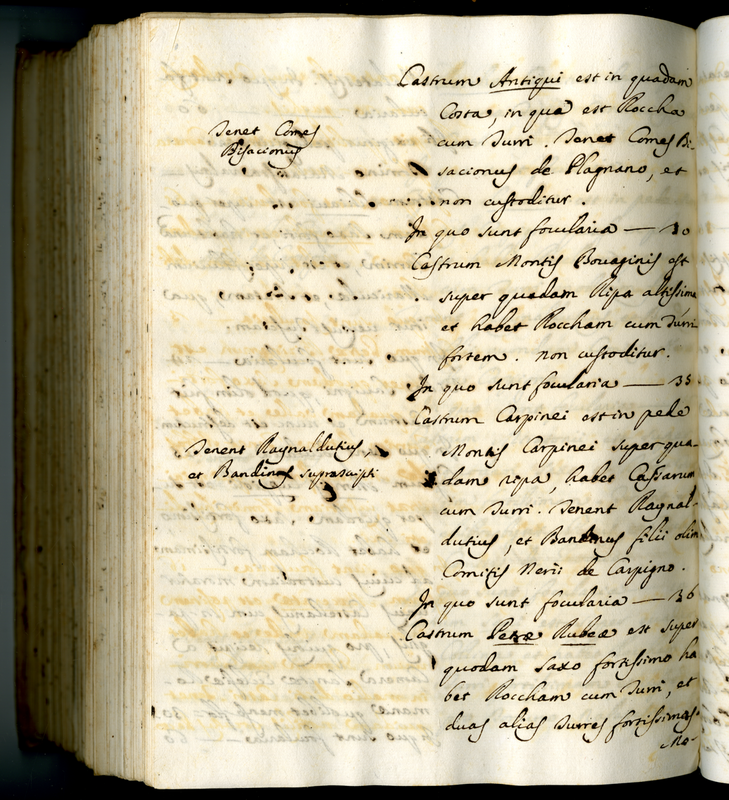 Castrum Antiqui est in quadam
Costa, in qua est Roccha
Tenet Comes
Bisacionus
cum Turri. Tenet Comes Bi-
sacionus de Plagnano, et
non custoditur.
In quo sunt focularia — 10
Castrum Montis Bouaginis est
super quadam Ripa altissima
et habet Roccham cum Turri
fortem. non custoditur.
In quo sunt focularia — 35
Castrum Carpinei est in pede
Tenent Raynaldutius,
et Bandinus suprascripti
Montis Carpinei super qua-
dam ripa, habet Cassarum
cum Turri. Tenent Raynal-
dutius, et Bandinus filii olim
Comitis Nerii de Carpigno.
In quo sunt focularia — 36
Castrum Petræ Rubeæ est super
quodam saxo fortissimo ha
bet Roccham cum Turri, et
duas alias Turres fortissimas.
Mo-